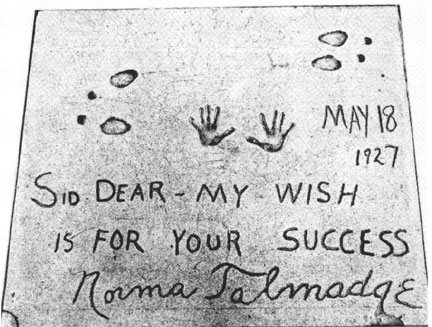 MAY 18
1927
SID DEAR - MY WISH
IS FOR YOUR SUCCESS
Norma Talmadge